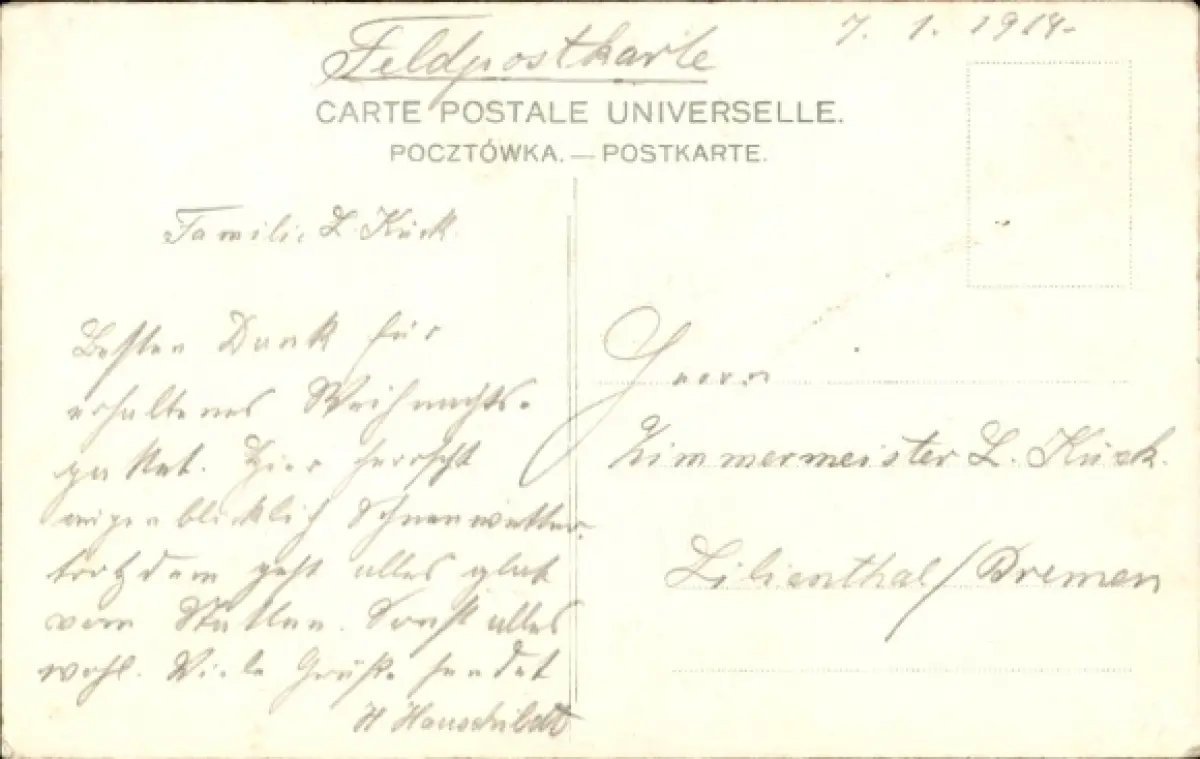 Feldpostkarte
7. 1. 1914.
CARTE POSTALE UNIVERSELLE.
POCZTÓWKA. — POSTKARTE.
Familie L. Kück.
Besten Dank für
erhaltenes Weihnachts-
paket. Hier herrscht
augenblicklich Schneewetter.
trotzdem geht alles glat
vom Statten. Sonst alles
wohl. Viele Grüße sendet
H Hauschildt
Herrn
Zimmermeister L. Kück.
Lilienthal/Bremen